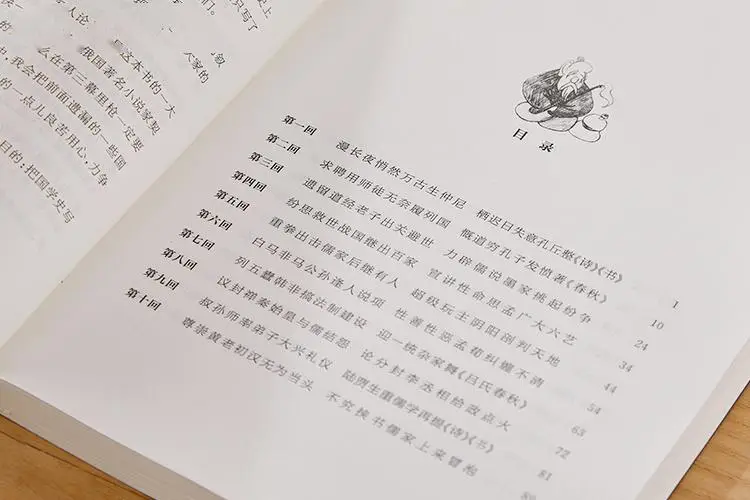 只写了
们。
人论
叙
这本书的一大
家的
俄国著名小说家契
么在第三幕里枪一定要
我会把前面遗漏的一些国
的一点儿良苦用心,力争
目的:把国学史写
目录
第一回 漫长夜悄然万古生仲尼 栖迟日失意孔丘整《诗》《书》 1
第二回 求聘用师徒无奈履列国 慨道穷孔子发愤著《春秋》 10
第三回 遗留道经老子出关避世 力辟儒说墨家挑起纷争 24
第四回 纷思救世战国继出百家 宣讲性命思孟广大六艺 34
第五回 重拳出击儒家后继有人 超级玩主阴阳剖判天地 44
第六回 白马非马公孙逢人说项 性善性恶孟荀纠缠不清 54
第七回 列五蠹韩非搞法制建设 迎一统杂家舞《吕氏春秋》 63
第八回 议封禅秦始皇与儒结怨 论分封李丞相点火 72
第九回 叔孙师率弟子大兴礼仪 陆贾生重儒学再提《诗》《书》 81
第十回 尊崇黄老初汉无为当头 不究挟书儒家上来冒泡